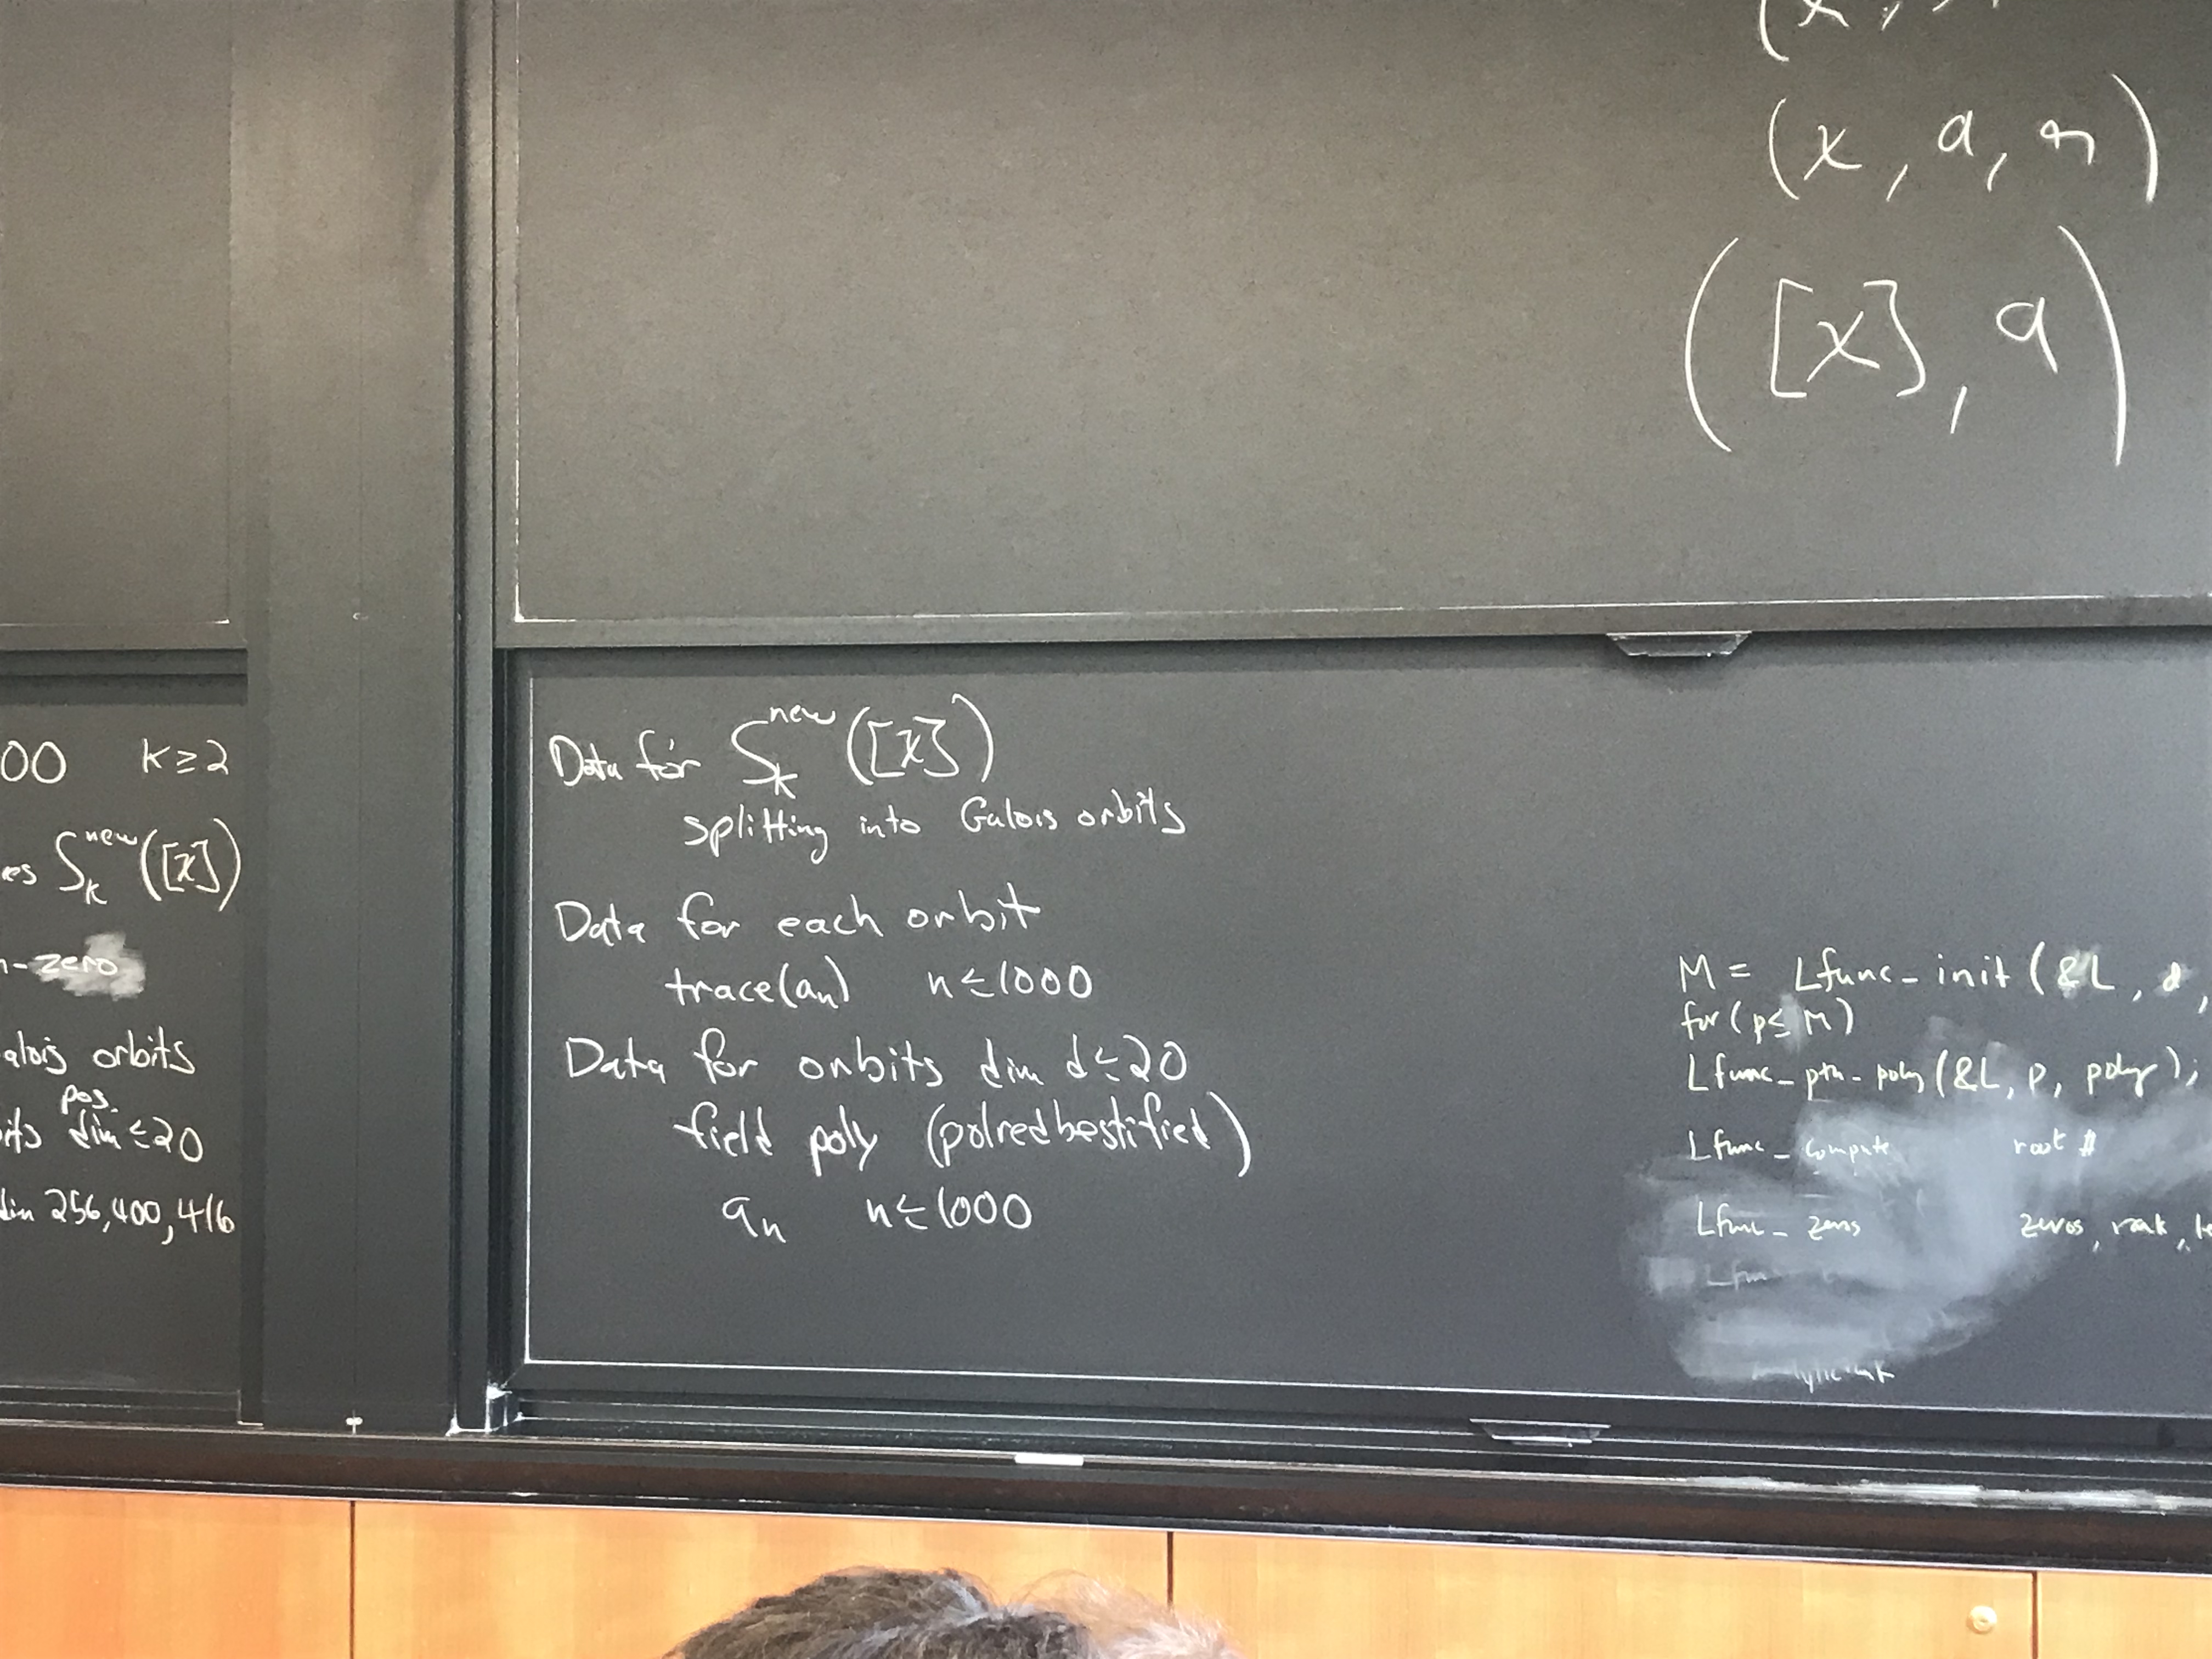 (x, a, n)
([χ], a)
00 K ≥ 2
es S_k^new([χ])
n-zero
alois orbits
pos.
its dim ≤ 20
dim 256, 400, 416
Data for S_k^new([χ])
splitting into Galois orbits
Data for each orbit
trace(a_n) n ≤ 1000
Data for orbits dim d ≤ 20
field poly (polredbestified)
a_n n ≤ 1000
M = Lfunc_init(&L, d,
for (p ≤ M)
Lfunc_pth_poly(&L, p, poly);
Lfunc_compute root #
Lfunc_zeros zeros, rank,